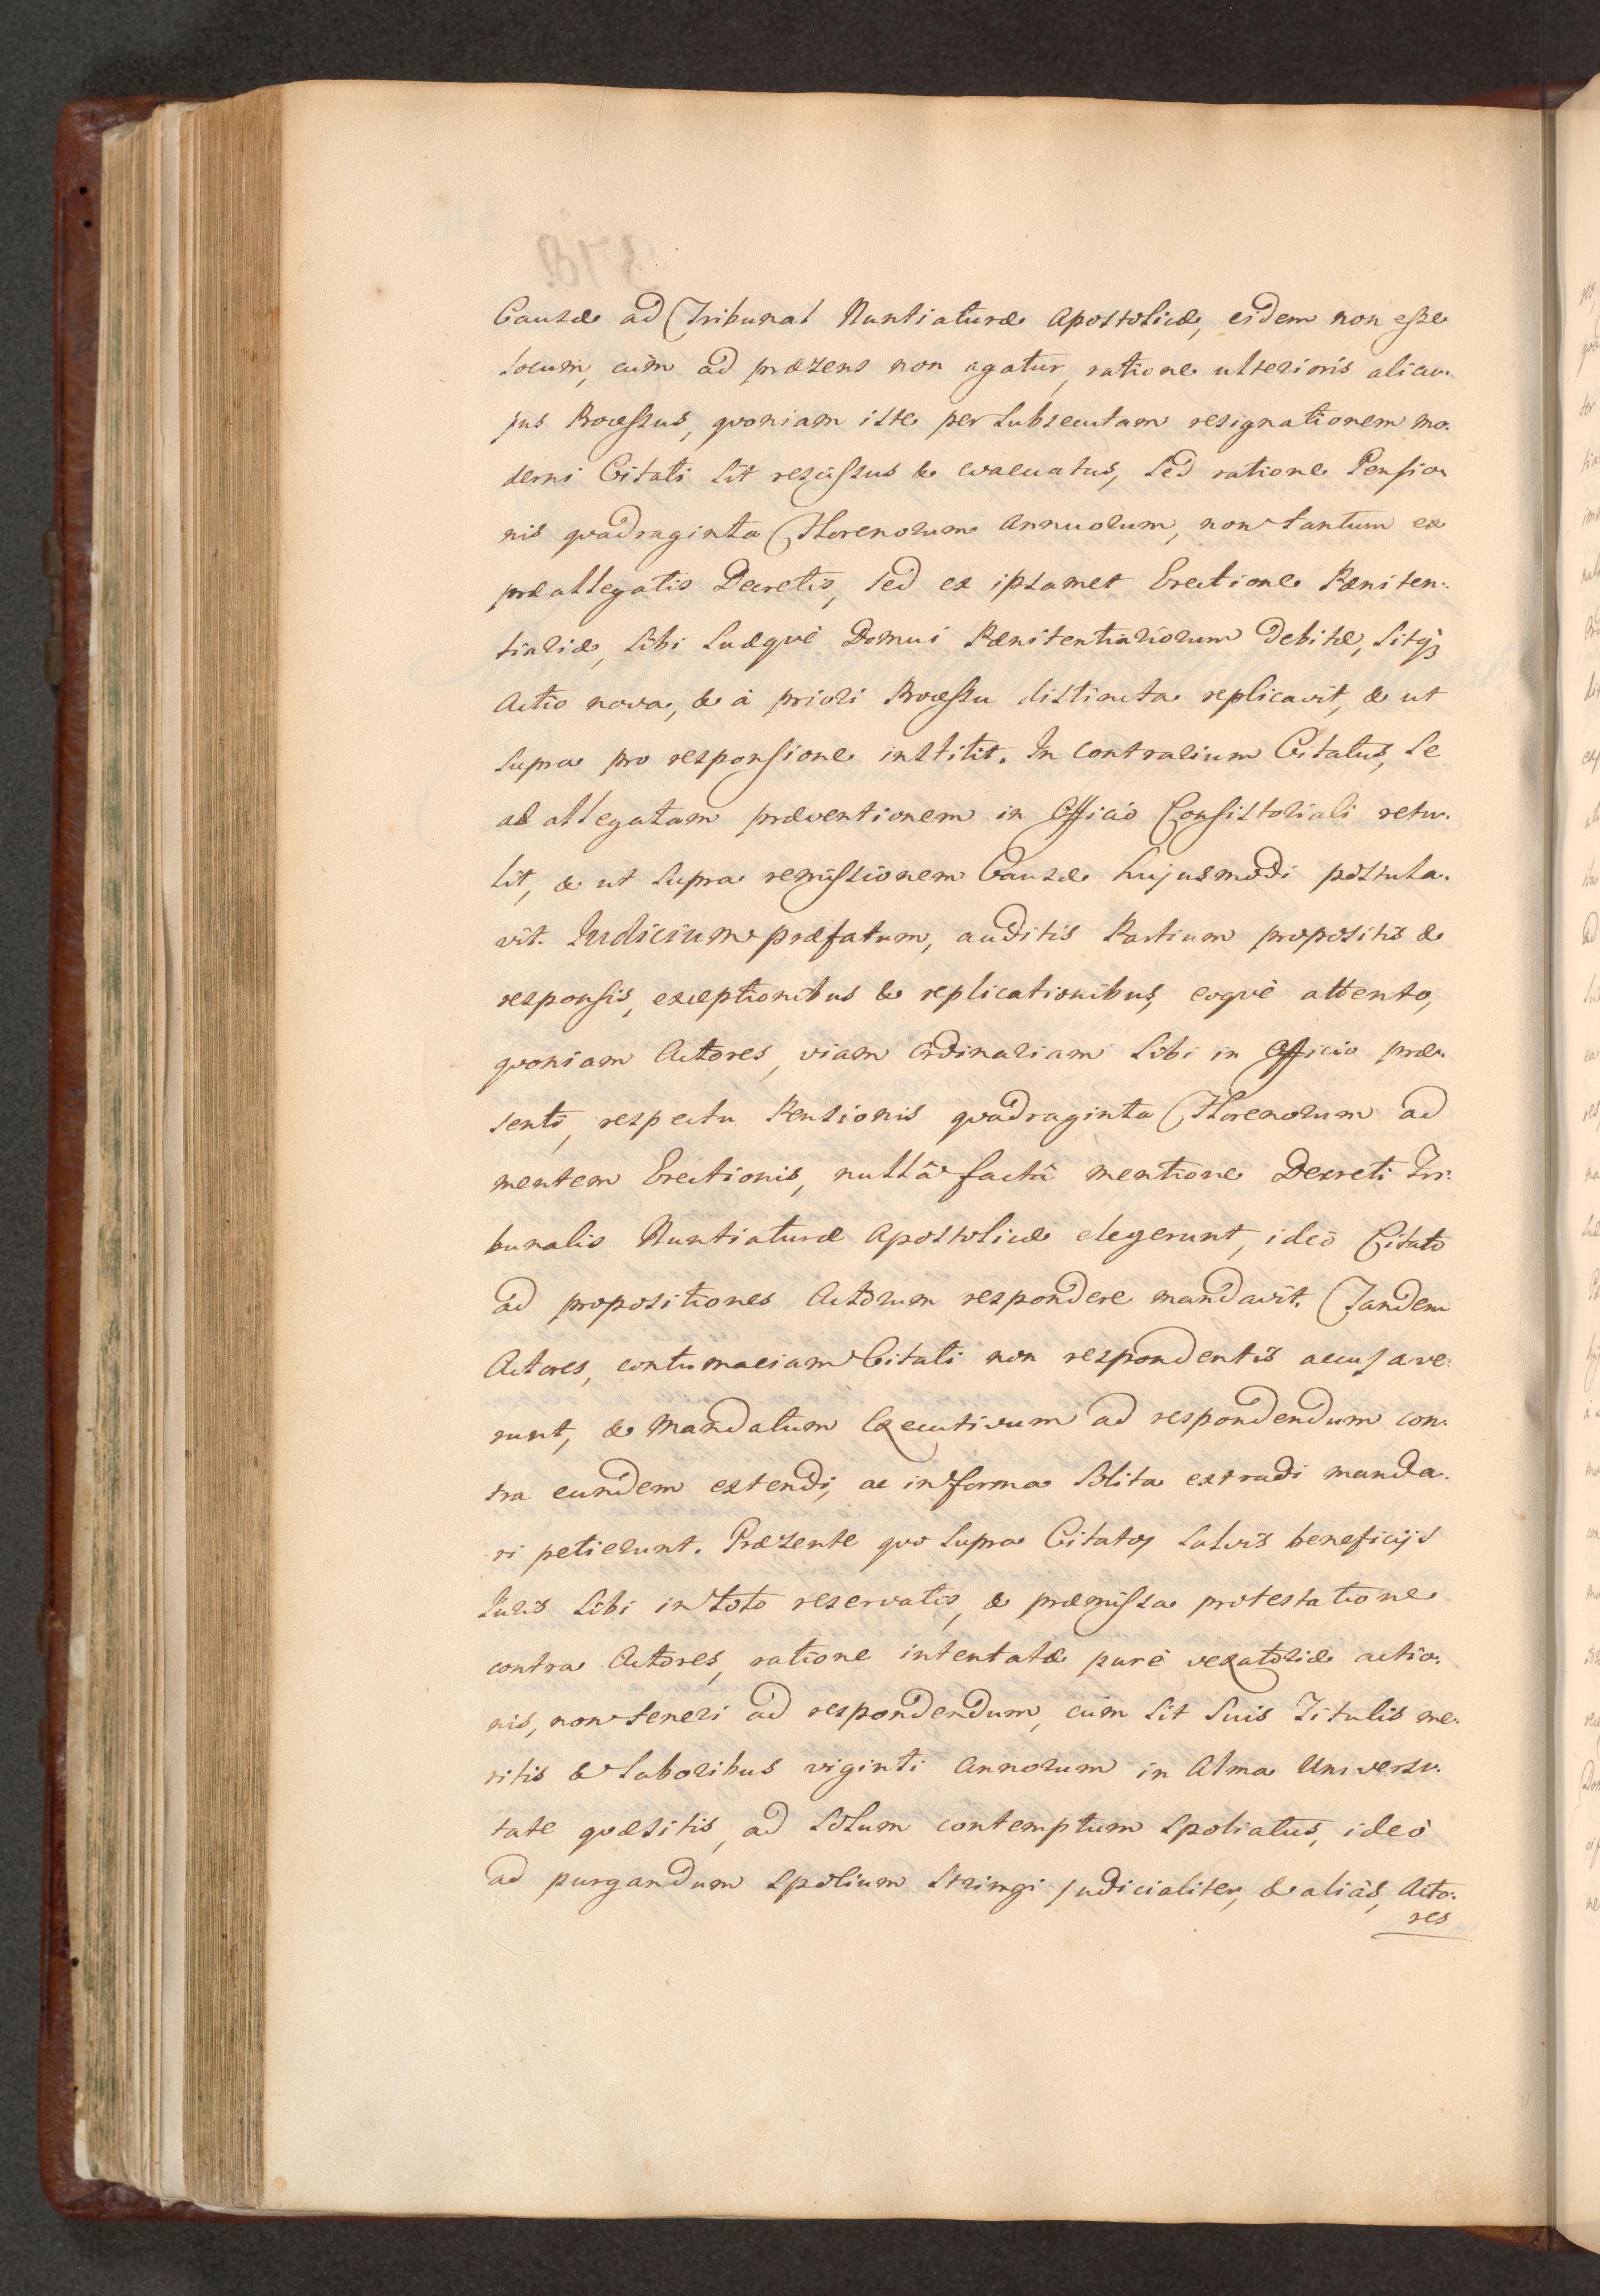 Causæ ad Tribunal Nuntiaturæ Apostolicæ, eidem non esse
locum, cùm ad præsens non agatur, ratione ulterioris alicu-
jus Processus, quoniam iste per subsecutam resignationem mo-
derni Citati sit rescissus & evacuatus, sed ratione Pensio-
nis quadraginta Florenorum annuorum, non tantum ex
præallegatis Decretis, sed ex ipsamet Erectione Pæniten-
tiariæ, sibi suæquè Domui Pænitentiariorum debitæ, sitq3
Actio nova, & à priori Processu distincta replicavit, & ut
supra pro responsione institit. In contrarium Citatus, se
ad allegatam præventionem in Officio Consistoriali retu-
lit, & ut supra remissionem Causæ hujusmodi postula-
vit. Iudicium præfatum, auditis Partium propositis &
responsis, exceptionibus & replicationibus, eoquè attento,
quoniam Actores, viam ordinariam sibi in Officio præ-
senti, respectu Pensionis quadraginta Florenorum ad
mentem Erectionis, nullâ factâ mentione Decreti Tri-
bunalis Nuntiaturæ Apostolicæ elegerunt, ideò Citato
ad propositiones Actorum respondere mandavit. Tandem
Actores, contumaciam Citati non respondentis accusave-
runt, & Mandatum Executivum ad respondendum con-
tra eundem extendi, ac in forma solita extradi manda-
ri petierunt. Præsente quo supra Citato, salvis beneficijs
Iuris sibi in toto reservatis, & præmissa protestatione
contra Actores, ratione intentatæ purè vexatoriæ actio-
nis, non teneri ad respondendum, cùm sit suis Titulis me-
ritis & laboribus viginti Annorum in Alma Universi-
tate quæsitis, ad solum contemptum spoliatus, ideò
ad purgandum spolium stringi judicialiter, & aliàs, Acto-
res